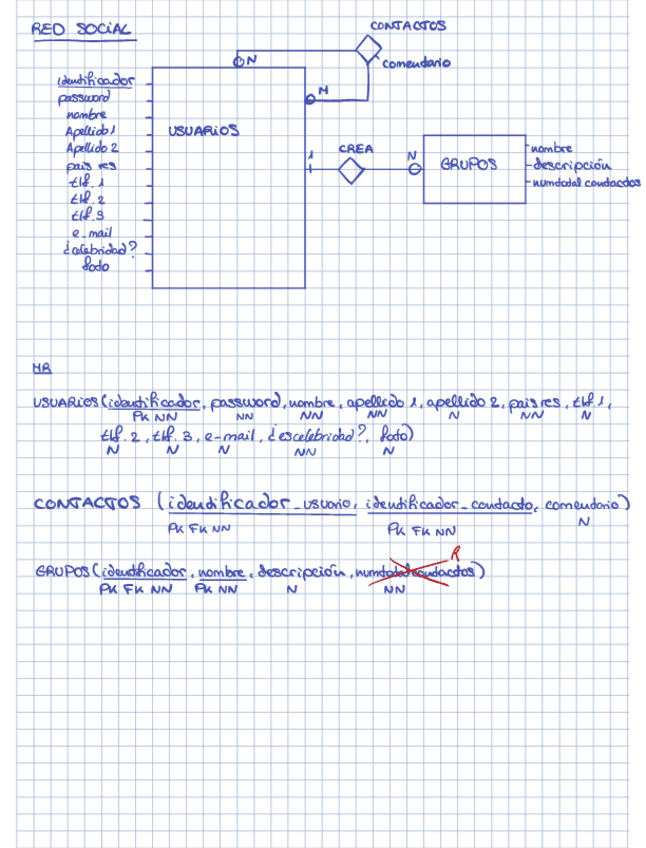 RED SOCIAL
CONTACTOS
N
comentario
identificador
password
N
nombre
USUARIOS
Apellido 1
Apellido 2
pais res
tlf. 1
tlf. 2
tlf. 3
e_mail
¿celebridad?
foto
1
CREA
N
GRUPOS
nombre
descripción
numtotal contactos
MR
USUARIOS (identificador, password, nombre, apellido 1, apellido 2, pais res, tlf 1,
PK NN NN NN NN N NN N
tlf. 2, tlf. 3, e-mail, ¿escelebridad?, foto)
N N N NN N
CONTACTOS (identificador_usuario, identificador_contacto, comentario)
PK FK NN PK FK NN N
R
GRUPOS (identificador, nombre, descripción, numtotal contactos)
PK FK NN PK NN N NN